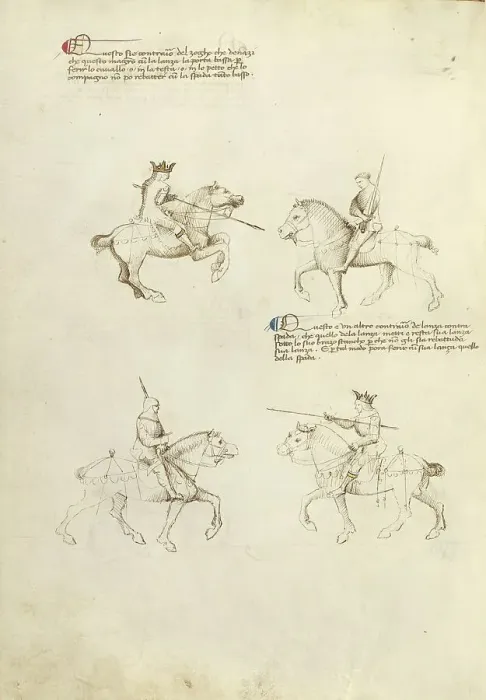 Questo sie contrario del zogho che denazi
che questo magro cum la lanza la porta bassa per
ferir lo cavallo o in la testa o in lo petto che lo
compagno non po rebatter cum la spada tanto basso.
Questo e un altro contrario de lanza contra
spada, che quello dela lanza metti e resta sua lanza
sotto lo suo brazo stancho per che non gli sia rebattuda
sua lanza. E per tal modo pora ferir cum sua lanza quello
della spada.